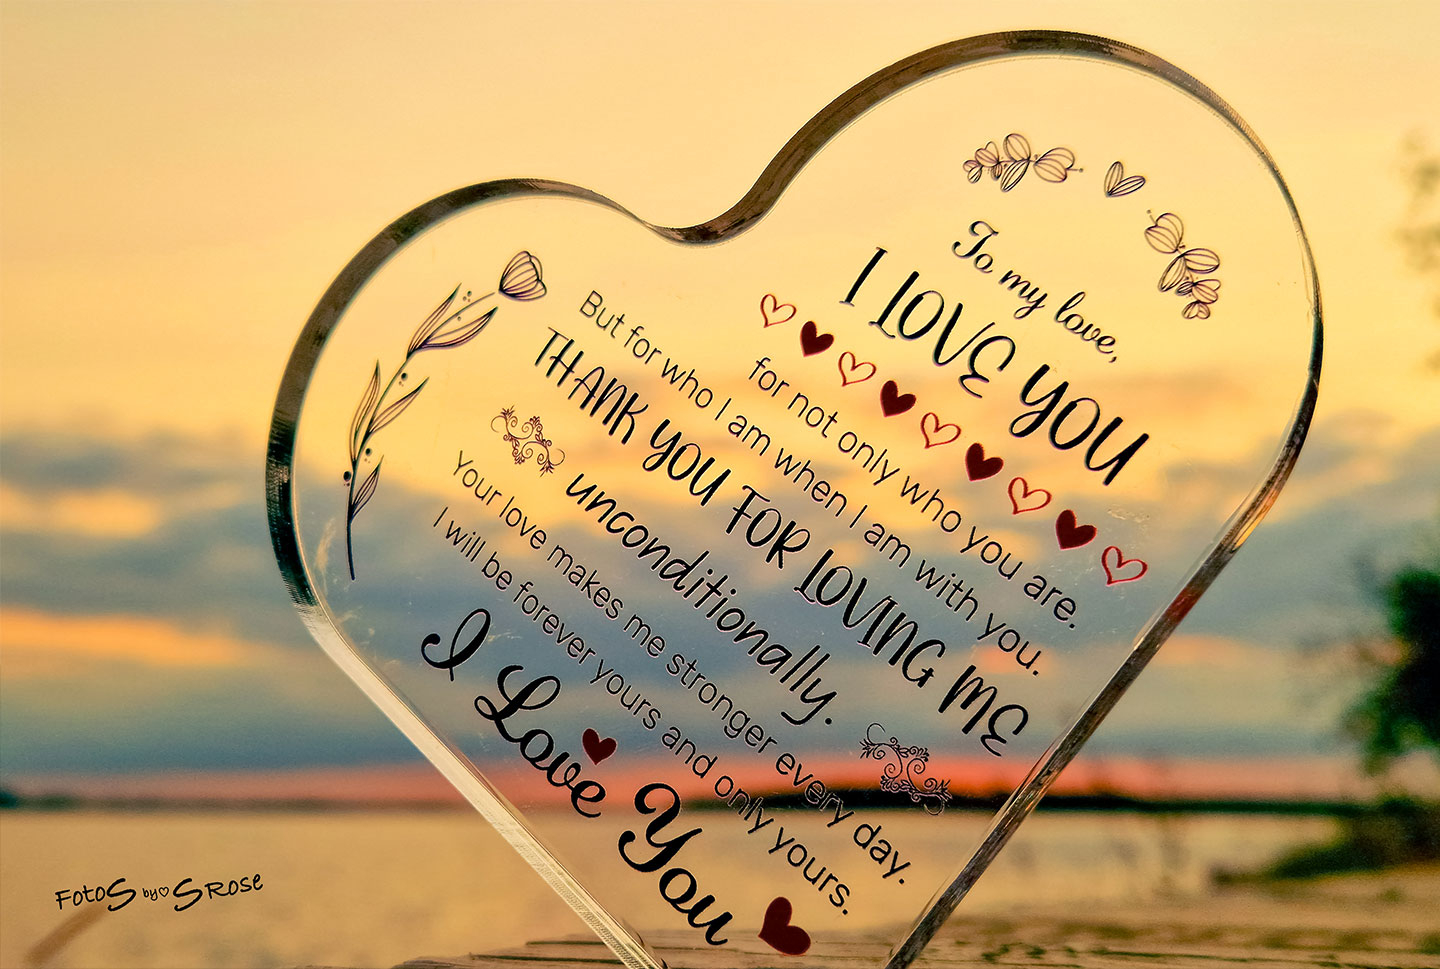 To my love,
I LOVE YOU
for not only who you are.
But for who I am when I am with you.
THANK YOU FOR LOVING ME
unconditionally.
Your love makes me stronger every day.
I will be forever yours and only yours.
I Love You
FotoS by SRose